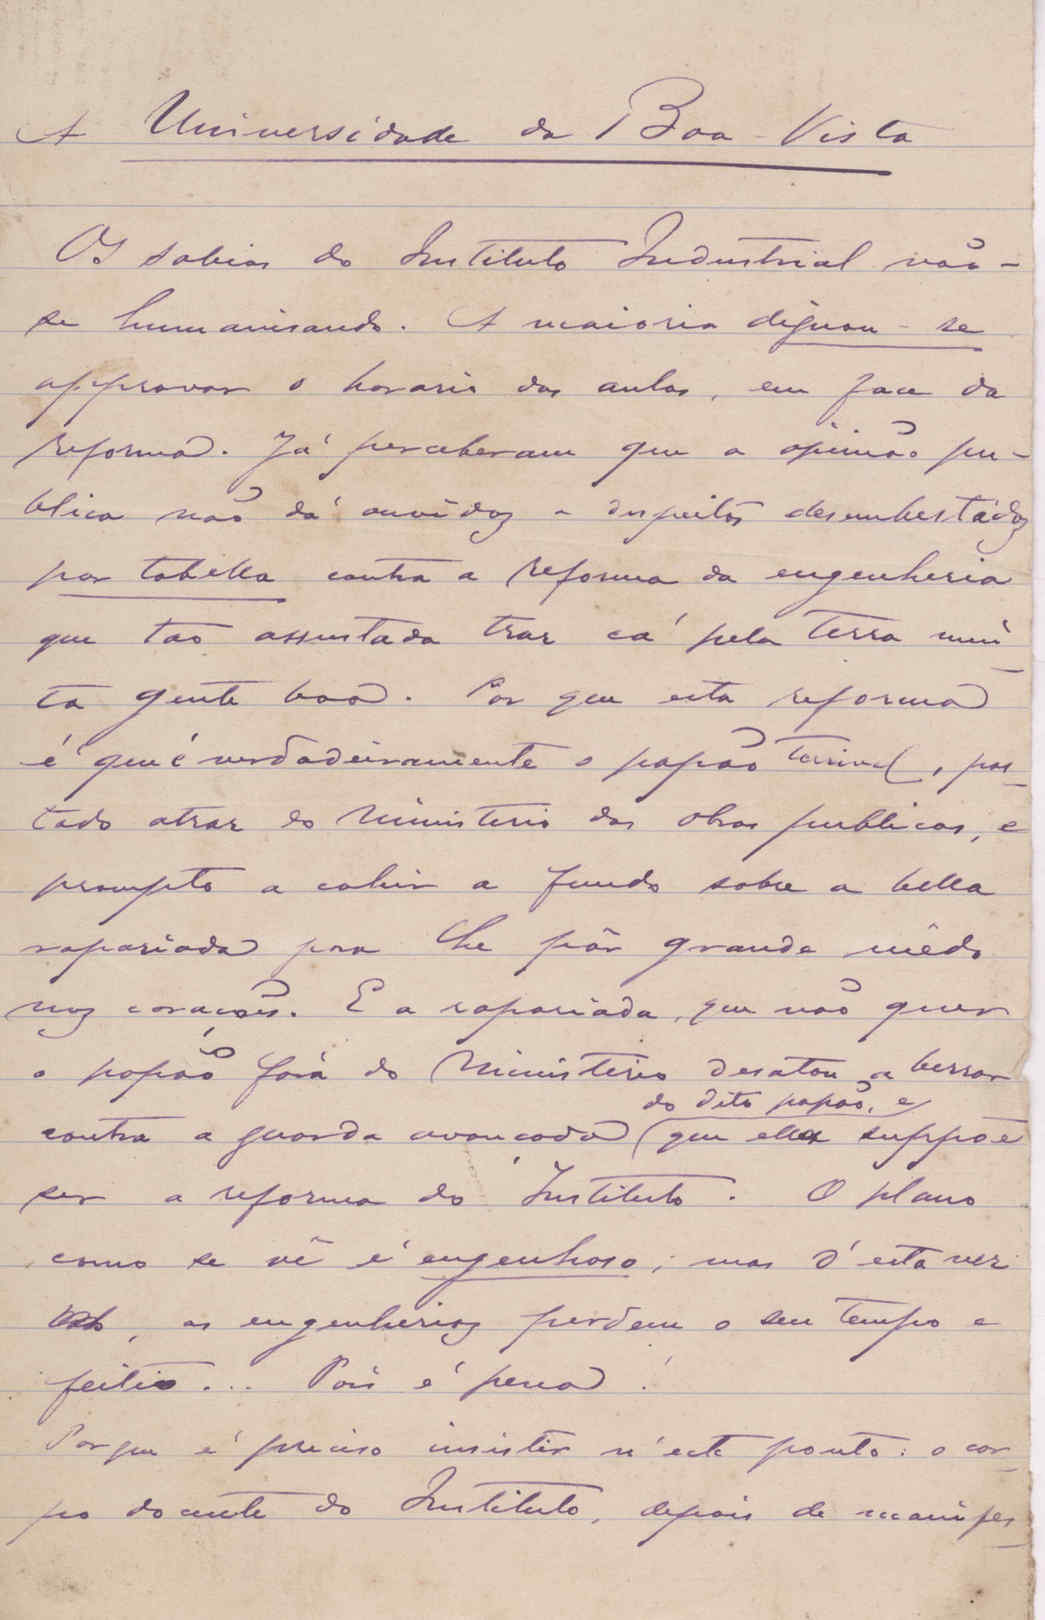 A Universidade da Boa-Vista
Os sabios do Instituto Industrial vão-
se humanisando. A maioria dignou-se
approvar o horario das aulas, em face da
reforma. Já perceberam que a opinião pu-
blica não dá ouvidos a despeitos desembestados
por tabella contra a reforma da engenheria
que tão assustada traz cá pela terra mui-
ta gente boa. Por que esta reforma
é que é verdadeiramente o papão terrivel, pos-
tado atraz do Ministerio das obras publicas, e
prompto a cahir a fundo sobre a bella
rapaziada pra lhe pôr grande mêdo
nos corações. E a rapaziada, que não quer
o papão fóra do Ministerio desatou a berrar
do dito papão, e
contra a guarda avançada (que ella suppõe
ser a reforma do Instituto. O plano
como se vê é engenhoso; mas d'esta vez
, os engenherios perdem o seu tempo e
feitio... Pois é pena!
Porque é preciso insistir n'este ponto: o cor-
po docente do Instituto, depois de manifes-